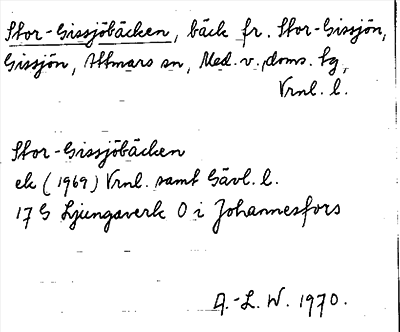 Stor-Gissjöbäcken, bäck fr. Stor-Gissjön,
Gissjön, Attmars sn, Med. v. doms. tg,
Vrnl. l.
Stor-Gissjöbäcken
ek (1969) Vrnl. samt Gävl. l.
17 G Ljungaverk O i Johannesfors
A.-L. W. 1970.